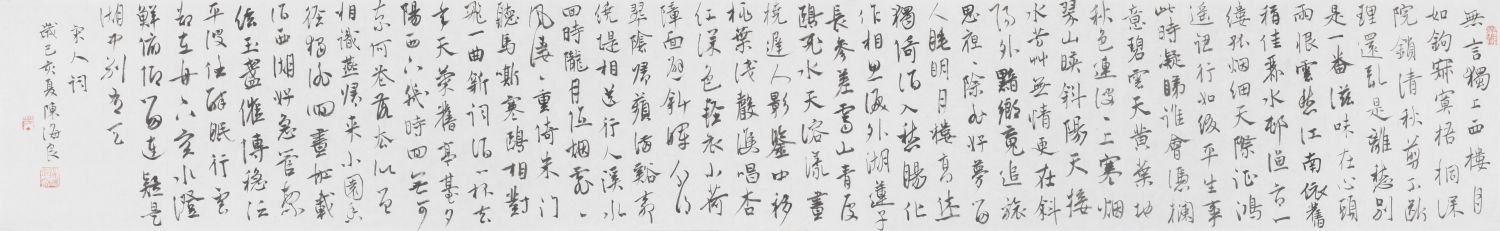 無言獨上西樓月
如鉤寂寞梧桐深
院鎖清秋剪不斷
理還亂是離愁別
是一番滋味在心頭
雨恨雲愁江南依舊
稱佳麗水邨漁市一
縷孤烟細天際征鴻
遥認行如綴平生事
此時凝睇誰會憑欄
意碧雲天黄葉地
秋色連波々上寒烟
翠山映斜陽天接
水芳草無情更在斜
陽外黯鄉魂追旅
思夜々除非好夢留
人睡明月樓高休
獨倚酒入愁腸化
作相思淚外湖蓮子
長參差霽山青處
鷗飛水天溶漾畫
橈遲人影鑒中移
桃葉淺聲雙唱杏
紅深色輕衣小荷
障面避斜暉分得
翠陰歸蘋滿谿柳
繞堤相送行人溪水
回時隴月低烟霏々
風淒々重倚朱門
聽馬嘶寒鷗相對
飛一曲新詞酒一杯去
年天氣舊亭臺夕
陽西下幾時回無可
奈何花落去似曾
相識燕歸來小園香
徑獨徘徊畫船載
酒西湖好急管繁
絃玉盞催傳穩泛
平波任醉眠行雲
却在舟下空水澄
鮮俯仰留連疑是
湖中别有天
宋人詞
歲己亥夏陳海良